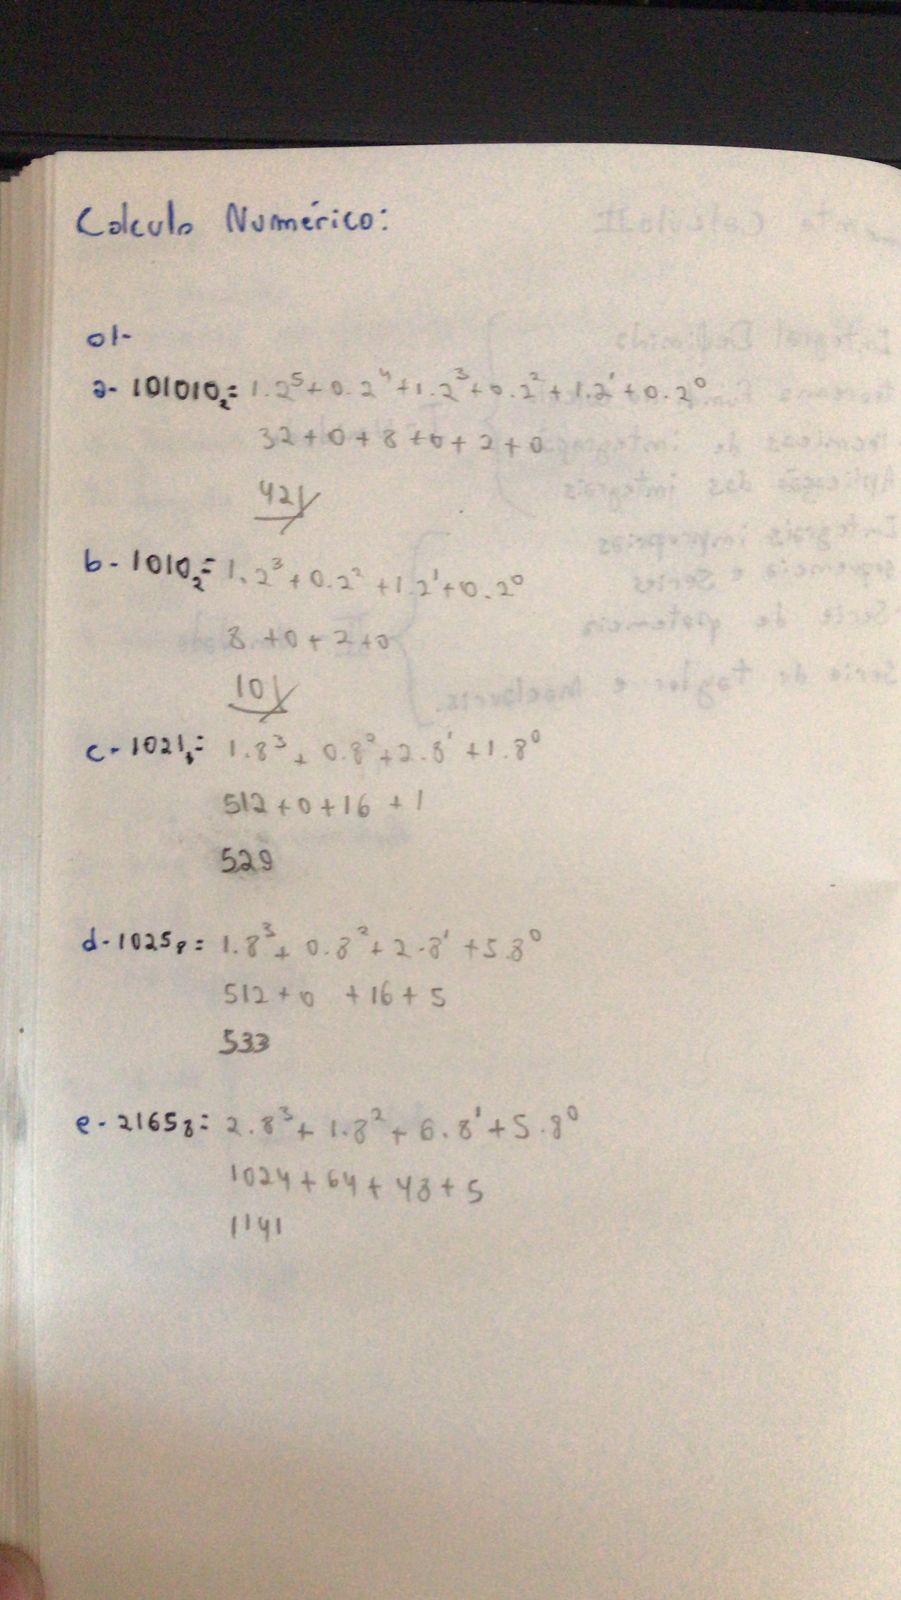 Calculo Numérico:
01-
a- 101010₂= 1.2⁵+0.2⁴+1.2³+0.2²+1.2¹+0.2⁰
32+0+8+0+2+0
42
b- 1010₂= 1.2³+0.2²+1.2¹+0.2⁰
8+0+2+0
10
c- 1021₈= 1.8³+0.8²+2.8¹+1.8⁰
512+0+16+1
529
d- 1025₈= 1.8³+0.8²+2.8¹+5.8⁰
512+0+16+5
533
e- 2165₈= 2.8³+1.8²+6.8¹+5.8⁰
1024+64+48+5
1141